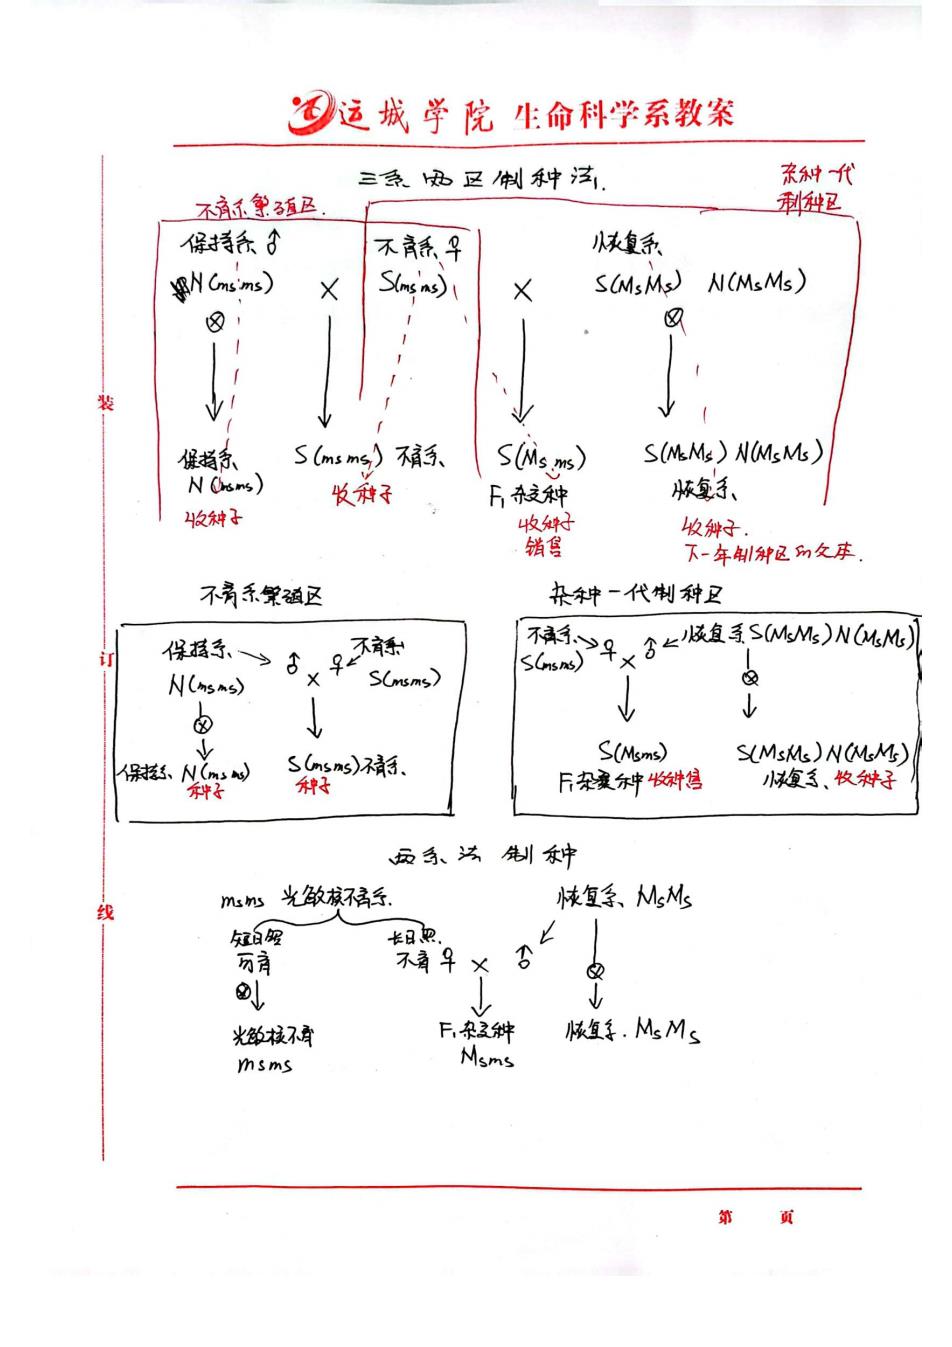 运城学院 生命科学系教案
三系两区制种法
杂种一代
制种区
不育系繁殖区
保持系♂ 不育系♀ 恢复系
N(msms) × S(msms) × S(MsMs) N(MsMs)
⊗ ⊗
保持系 S(msms) 不育系 S(Msms) S(MsMs) N(MsMs)
N(msms) F₁杂交种 恢复系
收种子 收种子 收种子 收种子.
销售 下一年制种区的父本.
不育系繁殖区 杂种一代制种区
保持系 → ♂ × ♀ ← 不育系
N(msms) S(msms)
⊗
保持系 N(msms) S(msms)不育系
种子 种子
不育系 → ♀ × ♂ ← 恢复系 S(MsMs) N(MsMs)
S(msms) ⊗
S(Msms) S(MsMs) N(MsMs)
F₁杂种 收种售 恢复系 收种子
两系法制种
msms 光敏核不育系. 恢复系 MsMs
短日照 长日照.
可育 不育♀ × ♂ ⊗
⊗
光敏核不育 F₁杂交种 恢复系. MsMs
msms Msms
装
订
线
第 页